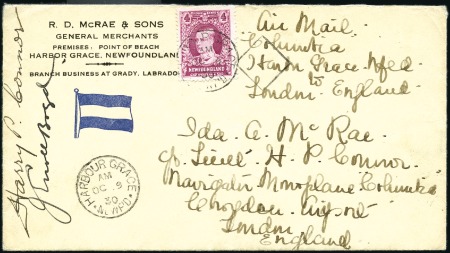 R. D. McRAE & SONS
GENERAL MERCHANTS
PREMISES: POINT OF BEACH
HARBOR GRACE, NEWFOUNDLAND
BRANCH BUSINESS AT GRADY, LABRADOR
Harry P. Connor
4
4
NEWFOUNDLAND
HARBOUR GRACE
AM
OC 9
30
NEWF'D
Air Mail
Columbia
Harbor Grace Nfld
to
London England
Ida. A. Mc Rae.
c/o Lieut H. P. Connor.
Navigator Monoplane Columbia
Croydon Airport
London
England